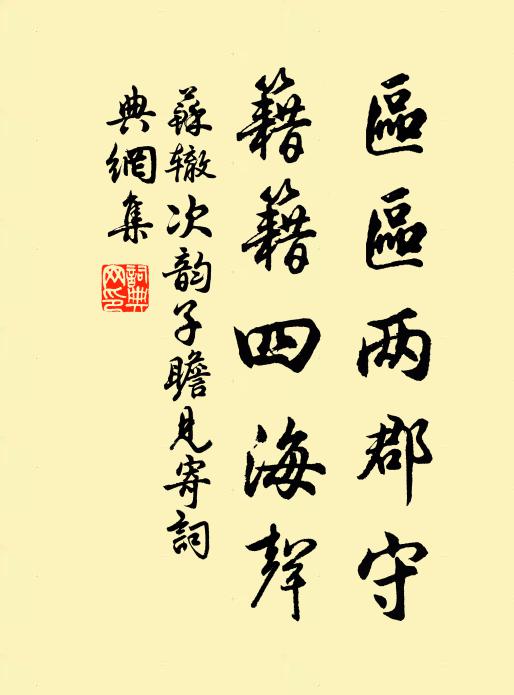 區區两郡守
籍籍四海聲
蘇辙次韵子瞻見寄詞
典網集
詞典网印